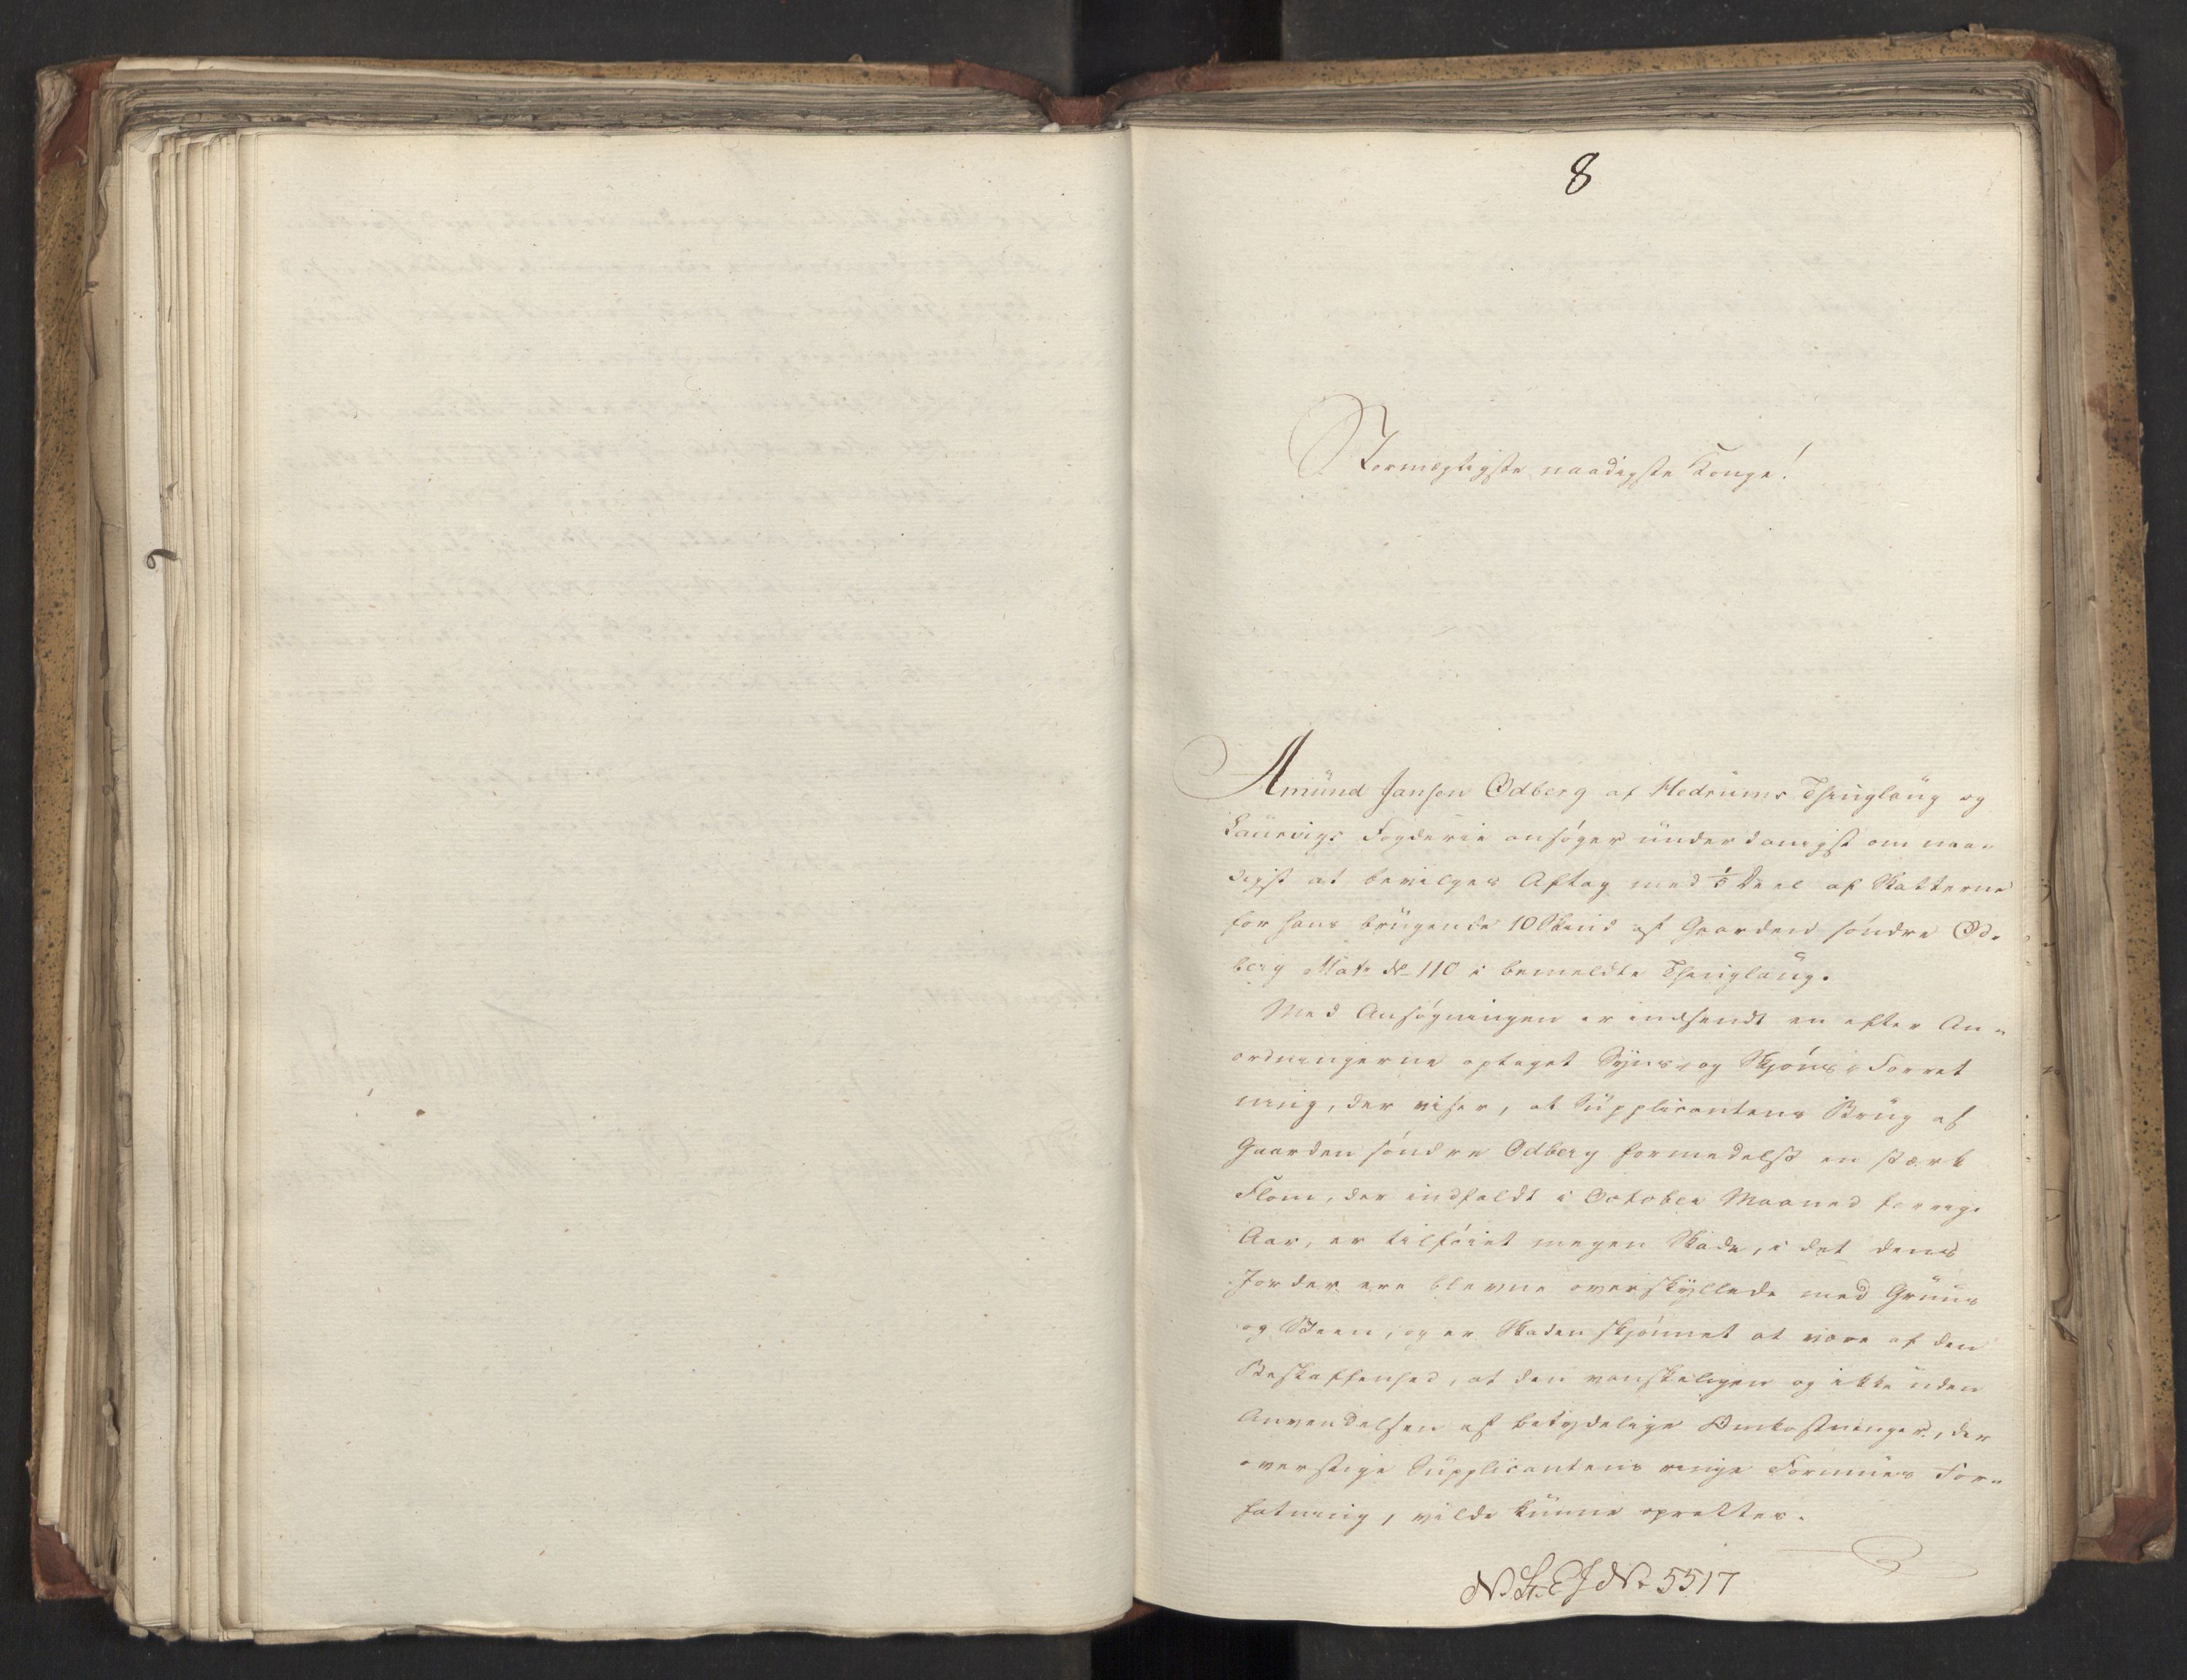 8
Stormægtigste naadigste Konge!
Amund Jansen Odberg af Hedrums Thinglaug og
Laurvigs Fogderie ansøger underdanigst om naa-
digst at bevilges Aftag med 1/5 Deel af Skatterne
for hans brugende 10 Skind af Gaarden søndre Od-
berg Matr № 110 i bemeldte Thinglaug.
Med Ansøgningen er indsendt en efter An-
ordningerne optaget Syns- og Skjøns-Forret
ning, der viser, at Supplicantens Brug af
Gaarden søndre Odberg formedelst en stærk
Flom, der indfaldt i October Maaned forrige
Aar, er tilføiet megen Skade, i det dens
Jorder ere blevne overskyllede med Gruus
og Steen, og er Skaden skjønnet at være af den
Beskaffenhed, at den vanskeligen og ikke uden
Anvendelsen af betydelige Omkostninger, der
overstige Supplicantens ringe Formues For-
fatning, vilde kunne oprettes.
№ 5517